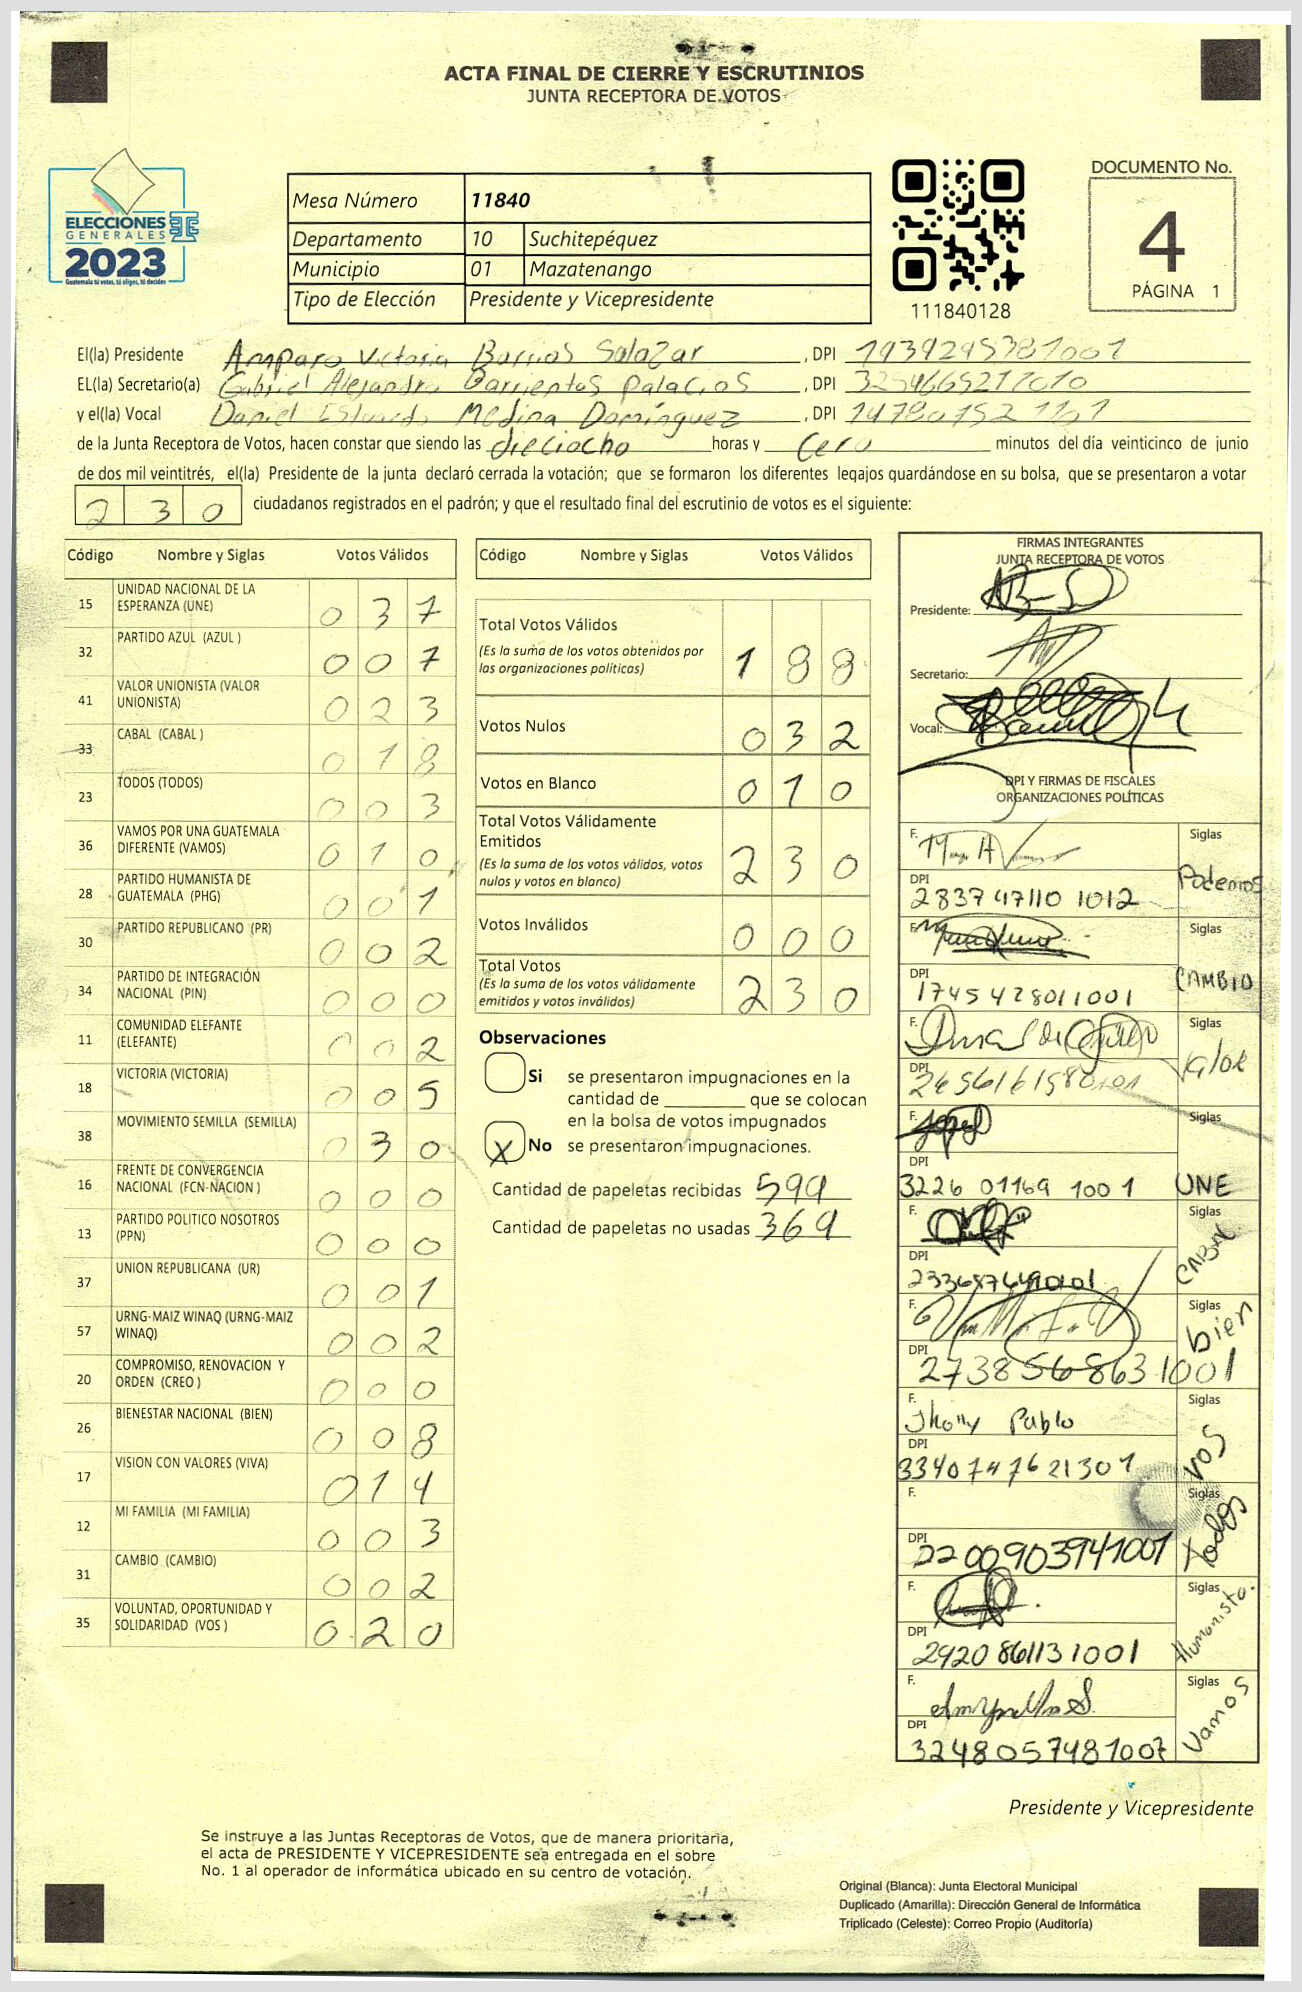 ACTA FINAL DE CIERRE Y ESCRUTINIOS
JUNTA RECEPTORA DE VOTOS
ELECCIONES
GENERALES
2023
Guatemala tú votas, tú eliges, tú decides
Mesa Número 11840
Departamento 10 Suchitepéquez
Municipio 01 Mazatenango
Tipo de Elección Presidente y Vicepresidente
111840128
DOCUMENTO No.
4
PÁGINA 1
El(la) Presidente Amparo Victoria Barrios Salazar , DPI 1939295381001
EL(la) Secretario(a) Gabriel Alejandro Barrientos Palacios , DPI 3254665211010
y el(la) Vocal Daniel Estuardo Medina Domínguez , DPI 14780152 1101
de la Junta Receptora de Votos, hacen constar que siendo las dieciocho horas y Cero minutos del día veinticinco de junio
de dos mil veintitrés, el(la) Presidente de la junta declaró cerrada la votación; que se formaron los diferentes legajos guardándose en su bolsa, que se presentaron a votar
230 ciudadanos registrados en el padrón; y que el resultado final del escrutinio de votos es el siguiente:
Código Nombre y Siglas Votos Válidos
15 UNIDAD NACIONAL DE LA ESPERANZA (UNE) 037
32 PARTIDO AZUL (AZUL ) 007
41 VALOR UNIONISTA (VALOR UNIONISTA) 023
33 CABAL (CABAL ) 018
23 TODOS (TODOS) 003
36 VAMOS POR UNA GUATEMALA DIFERENTE (VAMOS) 010
28 PARTIDO HUMANISTA DE GUATEMALA (PHG) 001
30 PARTIDO REPUBLICANO (PR) 002
34 PARTIDO DE INTEGRACIÓN NACIONAL (PIN) 000
11 COMUNIDAD ELEFANTE (ELEFANTE) 002
18 VICTORIA (VICTORIA) 005
38 MOVIMIENTO SEMILLA (SEMILLA) 030
16 FRENTE DE CONVERGENCIA NACIONAL (FCN-NACION ) 000
13 PARTIDO POLITICO NOSOTROS (PPN) 000
37 UNION REPUBLICANA (UR) 001
57 URNG-MAIZ WINAQ (URNG-MAIZ WINAQ) 002
20 COMPROMISO, RENOVACION Y ORDEN (CREO ) 000
26 BIENESTAR NACIONAL (BIEN) 008
17 VISION CON VALORES (VIVA) 014
12 MI FAMILIA (MI FAMILIA) 003
31 CAMBIO (CAMBIO) 002
35 VOLUNTAD, OPORTUNIDAD Y SOLIDARIDAD (VOS ) 020
Código Nombre y Siglas Votos Válidos
Total Votos Válidos 188
(Es la suma de los votos obtenidos por
las organizaciones políticas)
Votos Nulos 032
Votos en Blanco 010
Total Votos Válidamente
Emitidos 230
(Es la suma de los votos válidos, votos
nulos y votos en blanco)
Votos Inválidos 000
Total Votos 230
(Es la suma de los votos válidamente
emitidos y votos inválidos)
Observaciones
Si se presentaron impugnaciones en la
cantidad de ________ que se colocan
en la bolsa de votos impugnados
X No se presentaron impugnaciones.
Cantidad de papeletas recibidas 599
Cantidad de papeletas no usadas 369
FIRMAS INTEGRANTES
JUNTA RECEPTORA DE VOTOS
Presidente:
Secretario:
Vocal:
DPI Y FIRMAS DE FISCALES
ORGANIZACIONES POLÍTICAS
F. Siglas Podemos
DPI 2837 47110 1012
F. Siglas CAMBIO
DPI 1745428011001
F. Siglas Valor
DPI
F. Siglas UNE
DPI 3226 01169 1001
F. Siglas CABAL
DPI
F. Siglas bien
DPI 2738568631001
F. Jholly Pablo Siglas VOS
DPI 3340747621301
F. Siglas todos
DPI 2200903941001
F. Siglas Humanista.
DPI 2920861131001
F. Siglas Vamos
DPI 3248057481007
Presidente y Vicepresidente
Se instruye a las Juntas Receptoras de Votos, que de manera prioritaria,
el acta de PRESIDENTE Y VICEPRESIDENTE sea entregada en el sobre
No. 1 al operador de informática ubicado en su centro de votación.
Original (Blanca): Junta Electoral Municipal
Duplicado (Amarilla): Dirección General de Informática
Triplicado (Celeste): Correo Propio (Auditoría)